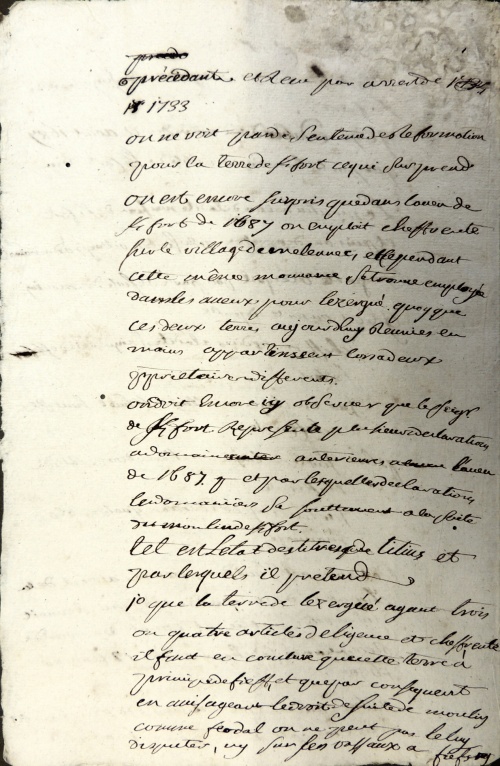 précédante et Rendu par arrest de
1733
on ne voit pas de Sentence de Reformation
pour la terre de Kfort ce qui Surprend
on est encore Surpris que dans laveu de
Kfort de 1687 on employoit cheffrente
Sur le village de et cependant
cette même mouvance Se trouve employée
dans les aveux pour lezergué quoy que
ces deux terres aujourdhuy Reunies en
mains appartenoient lors a deux
propriétaires differents.
on doit Encore icy observer que le Seigr
de Kfort Represente plusieurs declarations
a domaine anterieures a laveu
de 1687. et par lesquelles declarations
les domaniers Se soumettent a la suite
du moulin de Kfort.
tel est letat des titres que titius et
par lesquels il prétend
1o que la terre de lezergué ayant trois
ou quatre articles de ligence et cheffrente
il faut en conclure que cette terre a
principe de fieff, et que par consequent
en envisageant le droit de suite de moulin
comme feodal on ne peut pas le luy
disputer, ny Sur Ses vassaux a